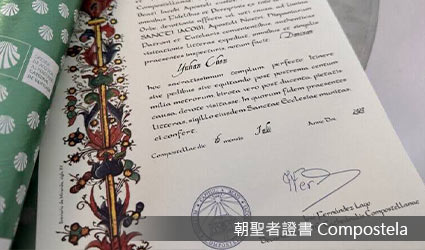 omnibus Fidelibus et Peregrinis ex toto
Orbe, devotionis affectu vel voti causa, ad limina
SANCTI IACOBI, Apostoli Nostri
Patroni et Tutelaris convenientibus, authenticas
visitationis litteras expediat, omnibus et singulis
praesentes inspecturis, notum facit: Dominum
hoc sacratissimum templum, perfecto itinere
sive pedibus sive equitando post postrema centum
milia metrorum, birota vero post ducenta, pietatis
causa, devote visitasse. In quorum fidem praesentes
litteras, sigillo ejusdem Sanctae Ecclesiae munitas,
ei confert.
Compostellae die 6 mensis Anno Dni
Fernández Lago
朝聖者證書 Compostela